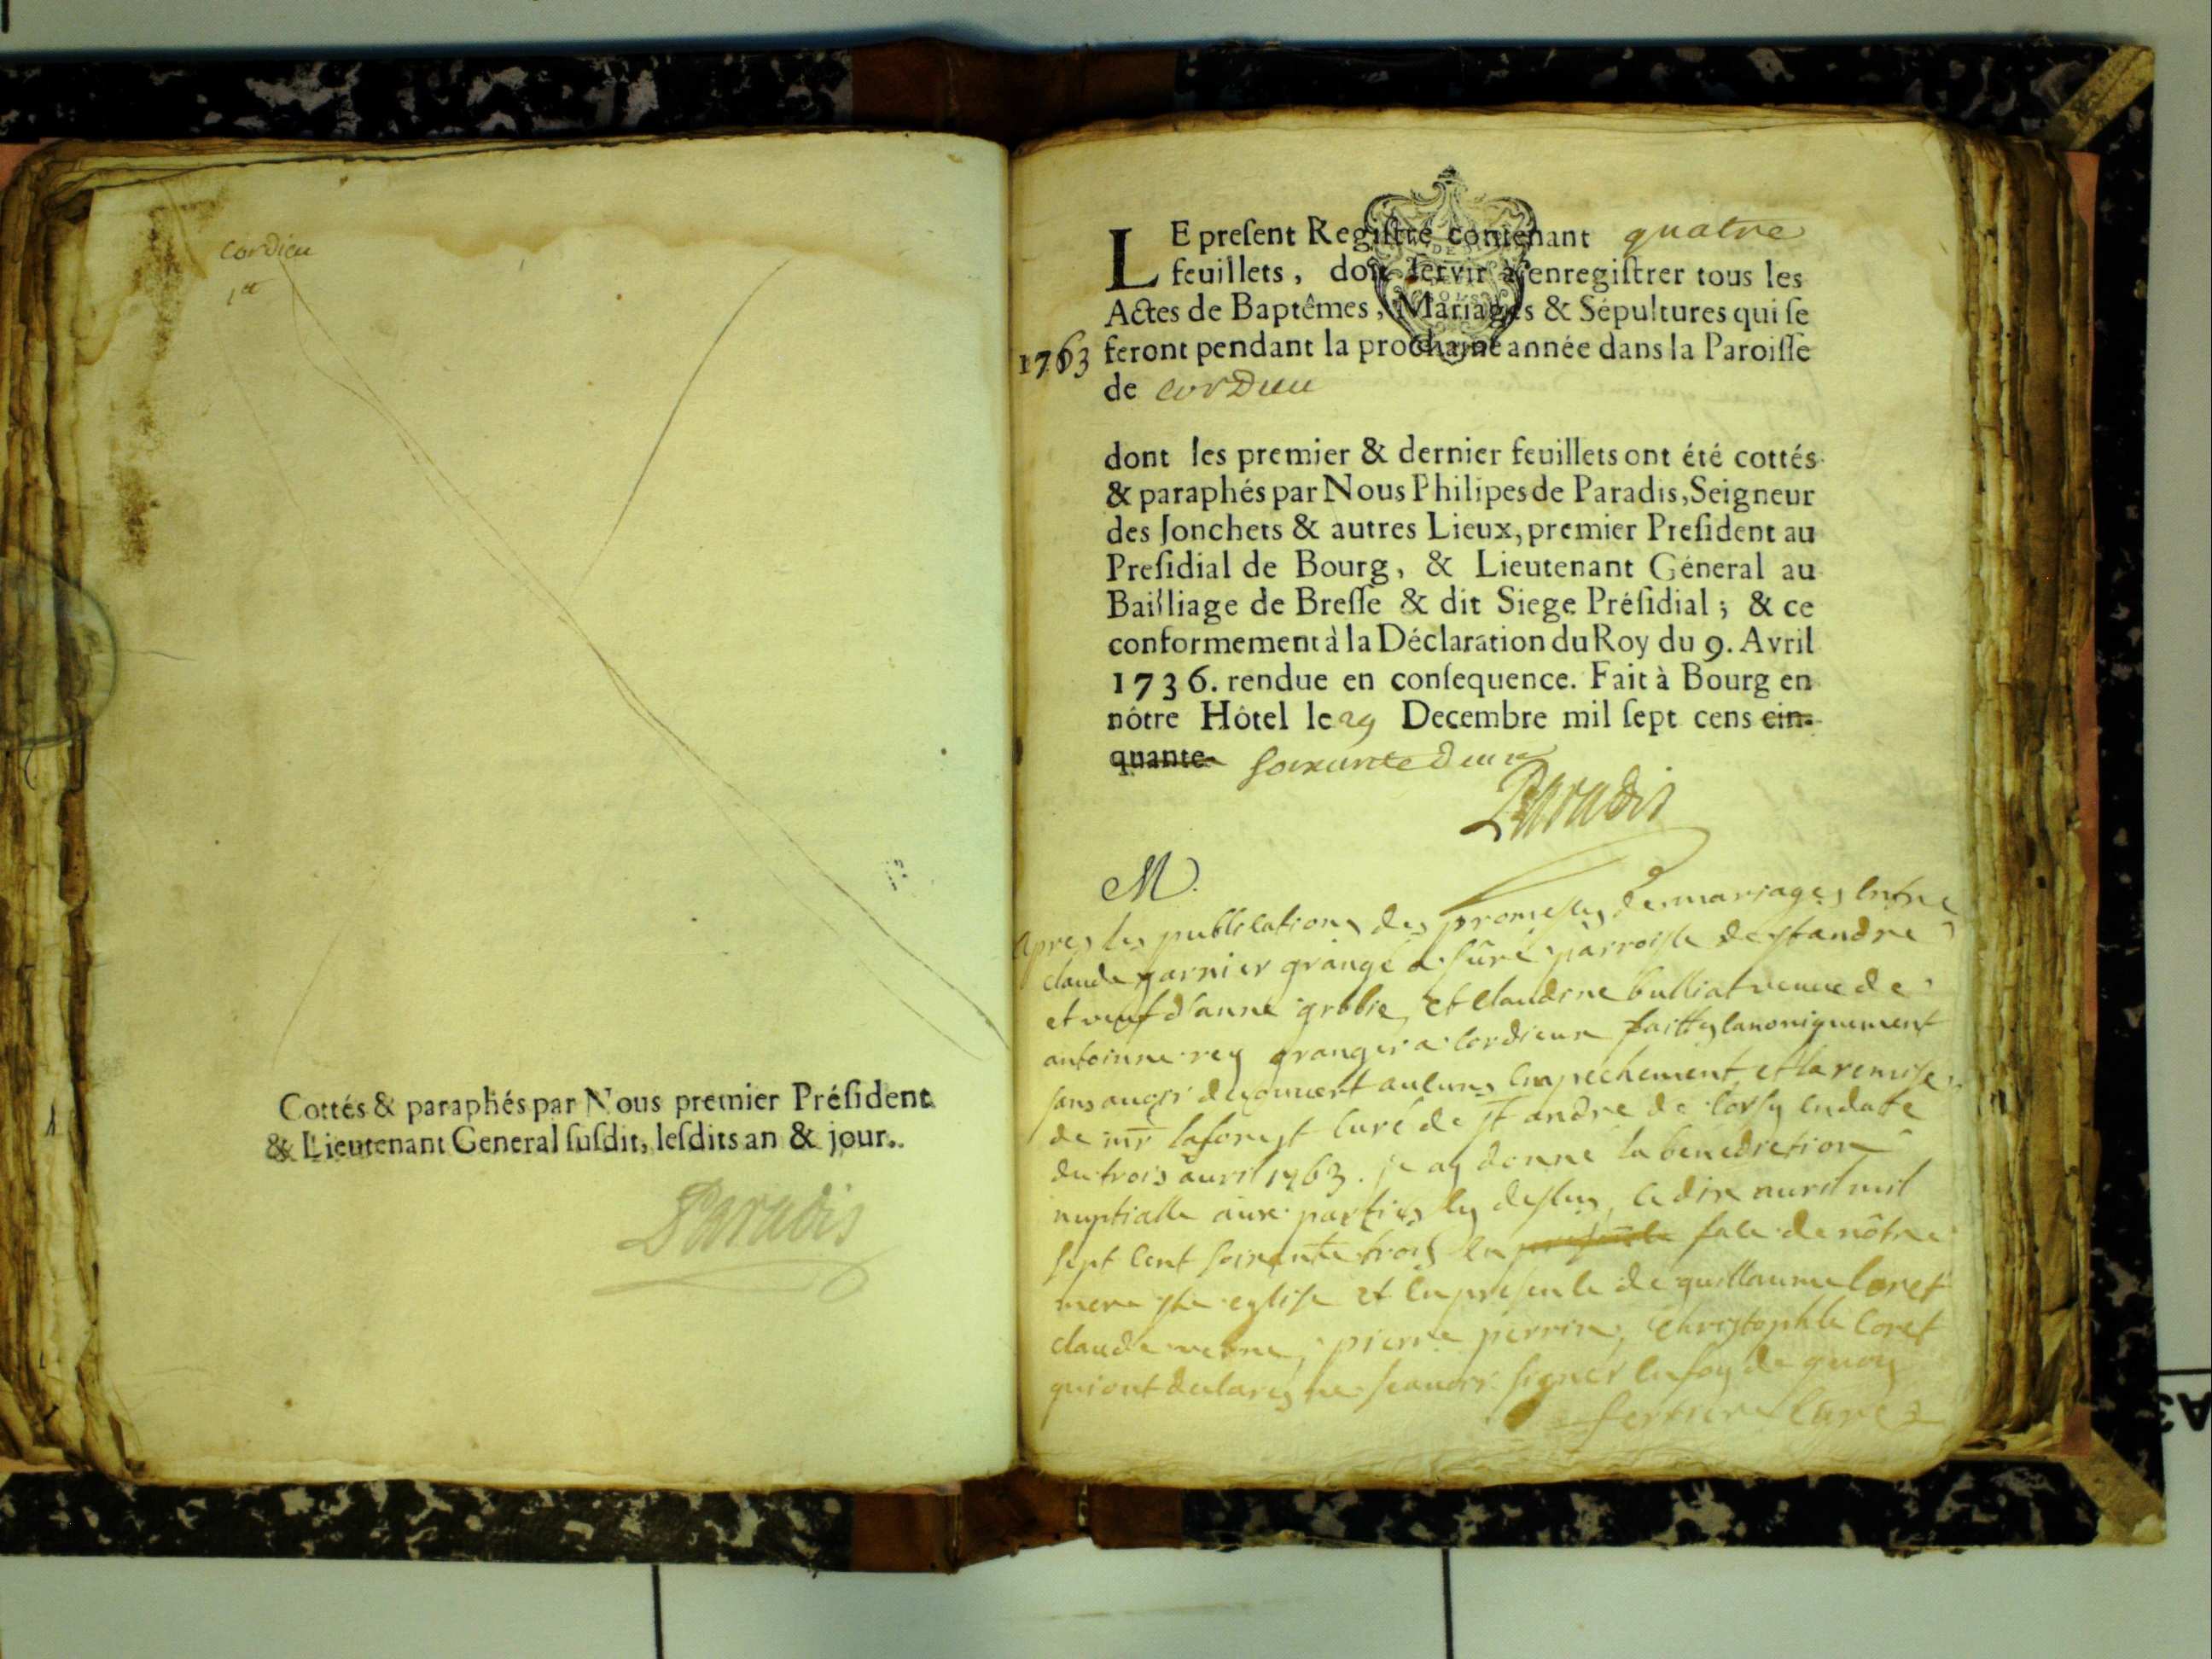 Cordieu
1er
Cottés & paraphés par Nous premier Préſident
& Lieutenant General ſuſdit, leſdits an & jour.
Paradis
LE preſent Regiſtre contenant quatre
feuillets, doit ſervir à enregiſtrer tous les
Actes de Baptêmes, Mariages & Sépultures qui ſe
1763 feront pendant la prochaine année dans la Paroiſſe
de Cordieu
dont les premier & dernier feuillets ont été cottés
& paraphés par Nous Philipes de Paradis, Seigneur
des Jonchets & autres Lieux, premier Preſident au
Preſidial de Bourg, & Lieutenant Géneral au
Bailliage de Breſſe & dit Siege Préſidial ; & ce
conformement à la Déclaration du Roy du 9. Avril
1736. rendue en conſequence. Fait à Bourg en
nôtre Hôtel le 29 Decembre mil ſept cens cin-
quante- soixante deux
Paradis
M.
apres les publications des promesses de mariages entre
claude garnier grangé a suré parroisse de st andre
et veuf d'anne et Claudine bulliat veuve de
antoinne rey granger a Cordieux faittes canoniquement
sans auoir decouuert aucuns empechement et la remise
de mr laforest curé de st andre de Corsy en date
du trois auril 1763. je ay donné la benediction
nuptialle aux parties cy dessus le dix auril mil
sept cent soixante trois en presence face de nôtre
mere ste eglise et en presence de guillaume Coret
claude verne, pierre perrin, Christophle Coret
qui ont declares ne scauoir signer en foy de quoy
Curé